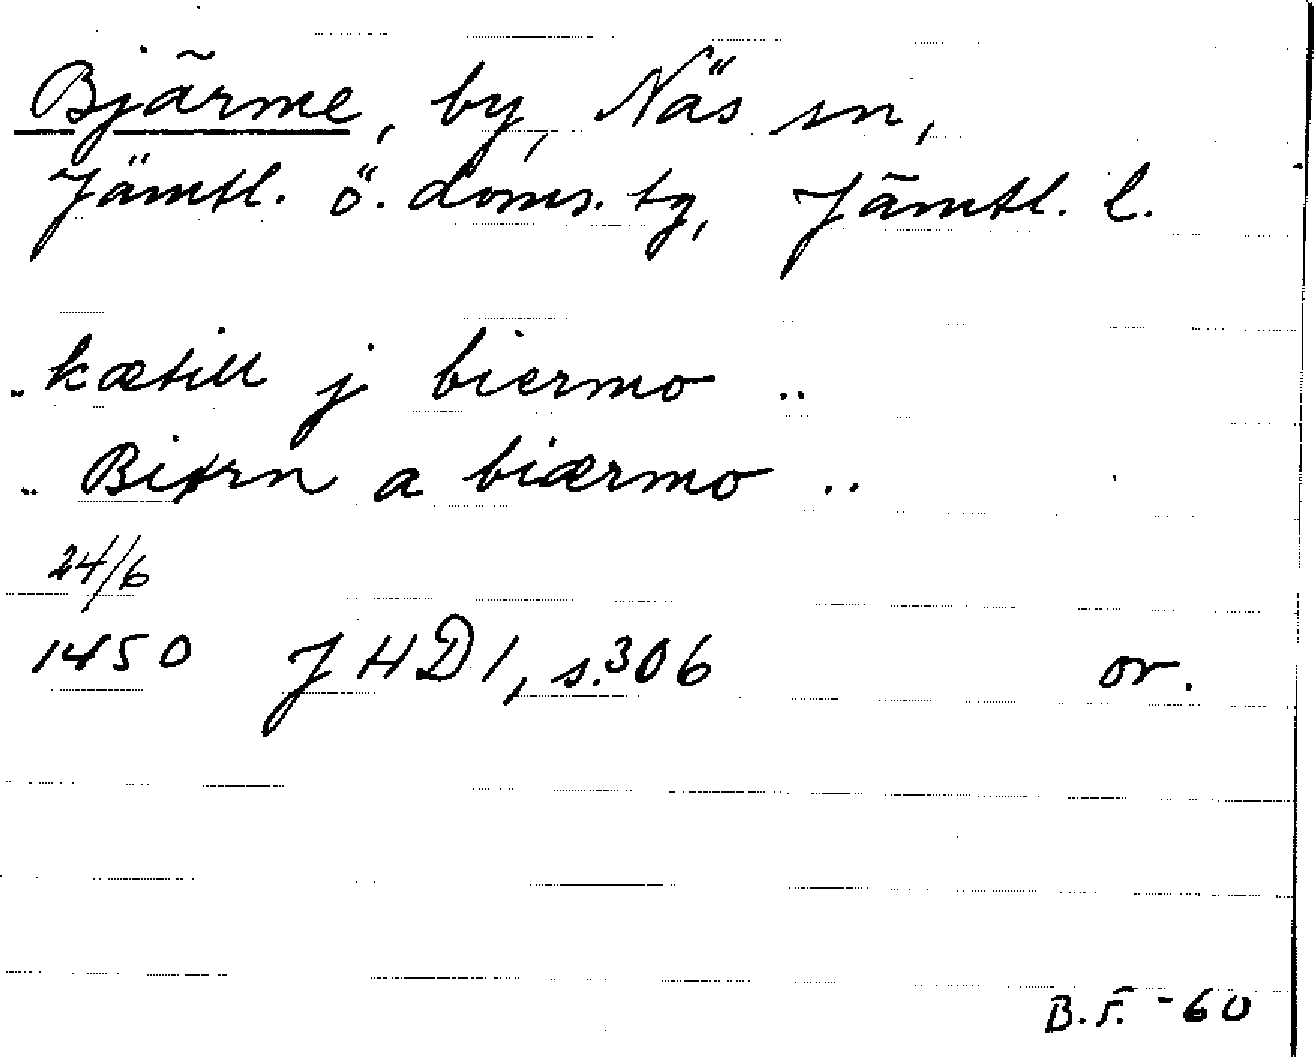 Bjärme, by, Näs sn,
Jämtl. ö. doms. tg, Jämtl. l.
.. kætill j biermo ..
.. Biørn a biærmo ..
24/6
1450 JHD 1, s. 306 or.
B.F. -60